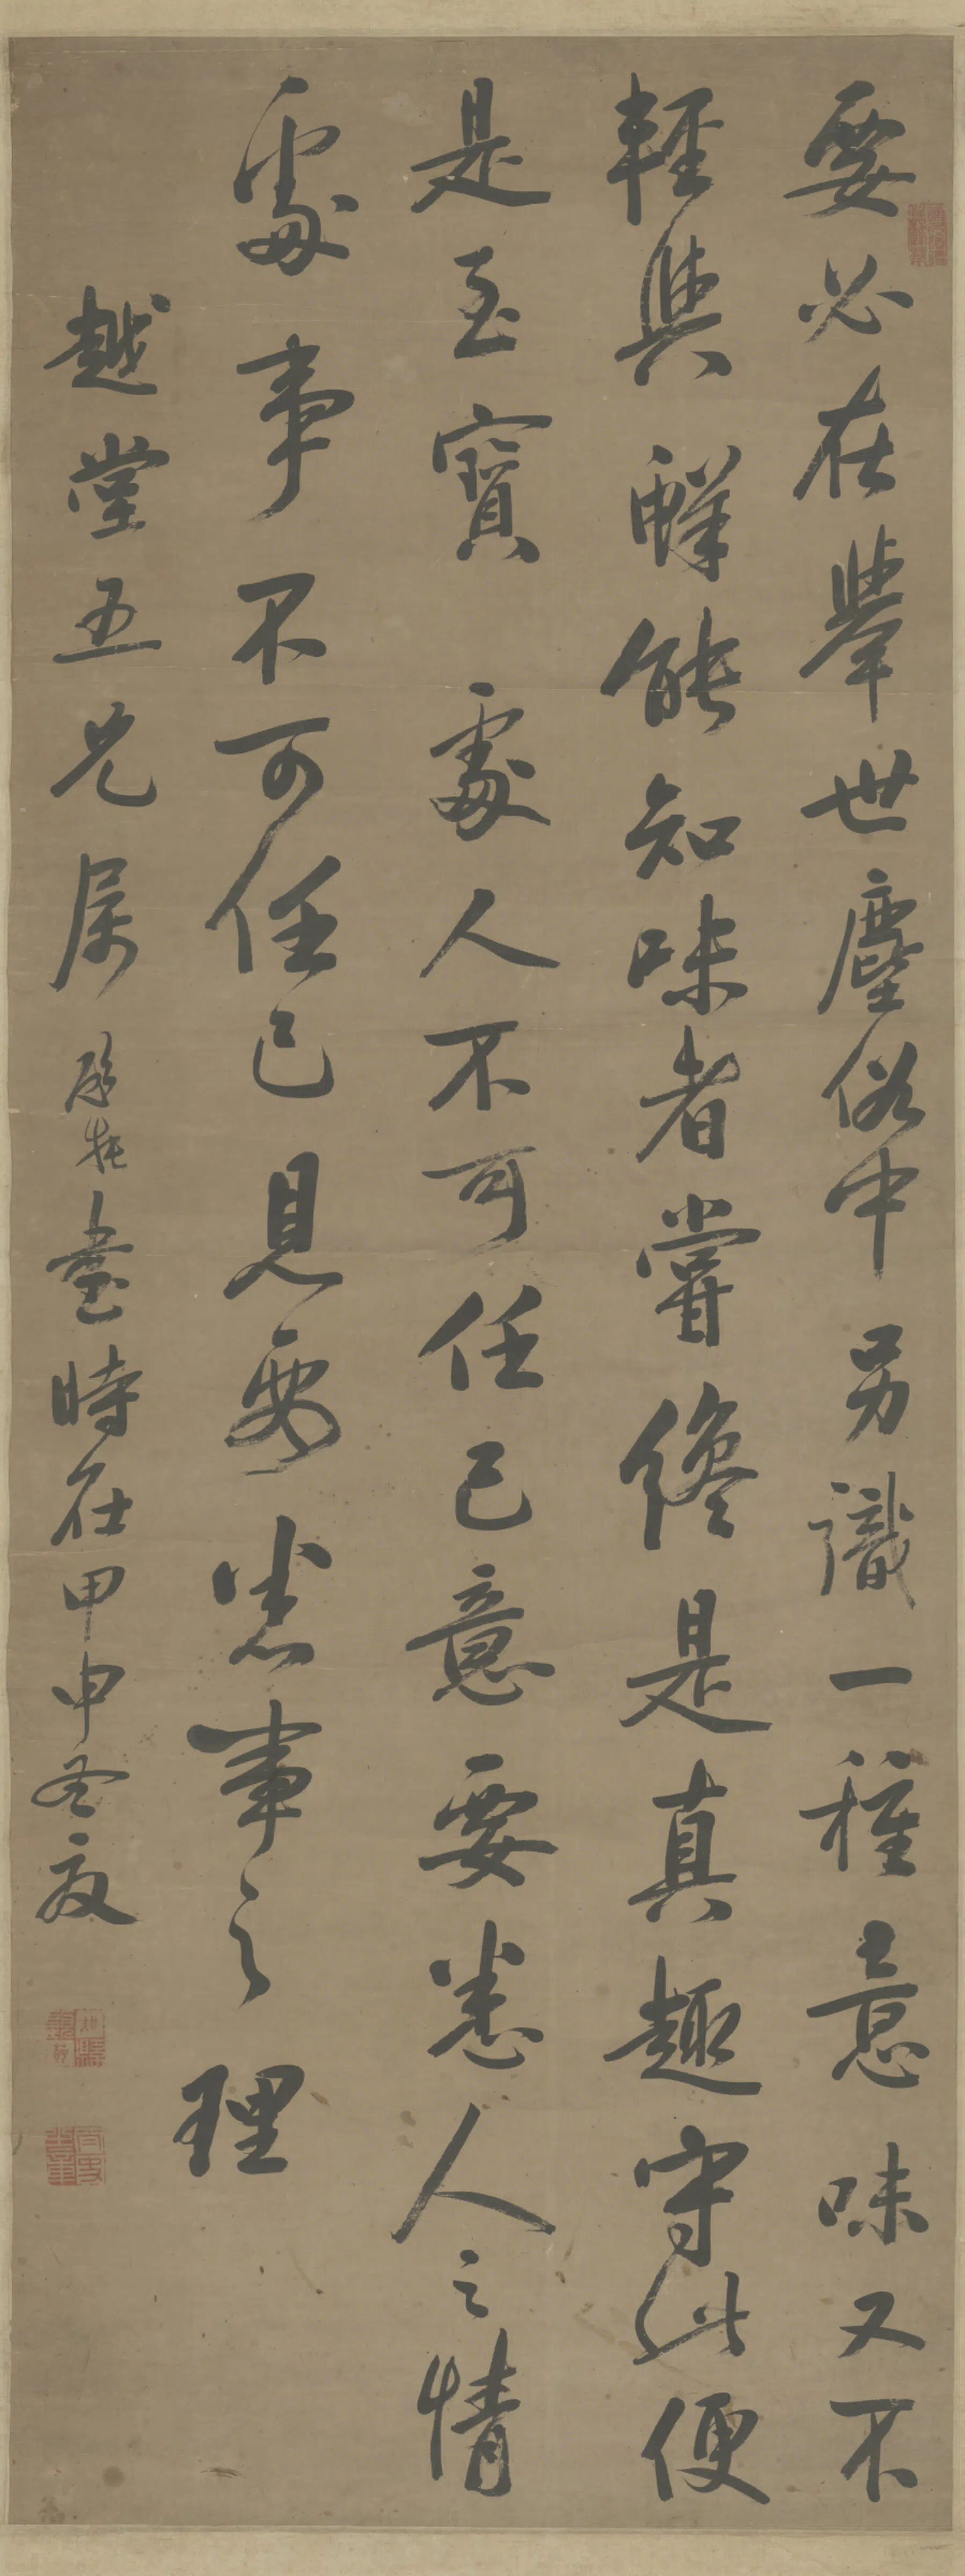 要必在舉世塵俗中另識一種意味又不
輕與鮮能知味者嘗終是真趣守此便
是至寶處人不可任己意要悉人之情
處事不可任己見要悉事之理
越堂五兄属 書時在甲申冬夜